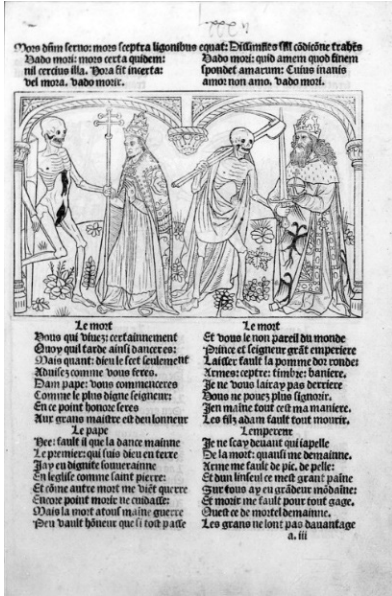 Mors dñm servo: mors sceptra ligonibus equat: Dissimiles simili cōdicōne trahēs
Vado mori: mors certa quidem:
nil cercius illa. Hora fit incerta:
vel mora. vado mori.
Vado mori: quid amem quod finem
spondet amarum: Cuius inanis
amo: non amo. vado mori.
Le mort
Vous qui vivez: certainnement
Quoy quil tarde ainsi danceres:
Mais quant: dieu le scet seulement
Advisez comme vous feres.
Dam pape: vous commenceres
Comme le plus digne seigneur:
En ce point honore seres
Aux grans maistre est deu lonneur
Le pape
Hee: fault il que la dance mainne
Le premier: qui suis dieu en terre
Jay eu dignite souverainne
En leglise comme saint pierre:
Et cōme autre mort me viēt querre
Encore point morir ne cuidasse:
Mais la mort a tous maine guerre
Peu vault hōneur que si tost passe
Le mort
Et vous le non pareil du monde
Prince et seigneur grāt emperiere
Laisser fault la pomme dor ronde:
Armes: ceptre: timbre: baniere.
Je ne vous lairay pas derriere
Vous ne povez plus signorir.
Jen maine tout cest ma maniere.
Les filz adam fault tout mourir.
Lempereur
Je ne scay devant qui iapelle
De la mort: quansi me demainne.
Arme me fault de pic. de pelle:
Et dun linseul ce mest grant paine
Sur tous ay eu grādeur mōdaine:
Et morir me fault pour tout gage.
Quest ce de mortel demainne.
Les grans ne lont pas davantage
a. iii